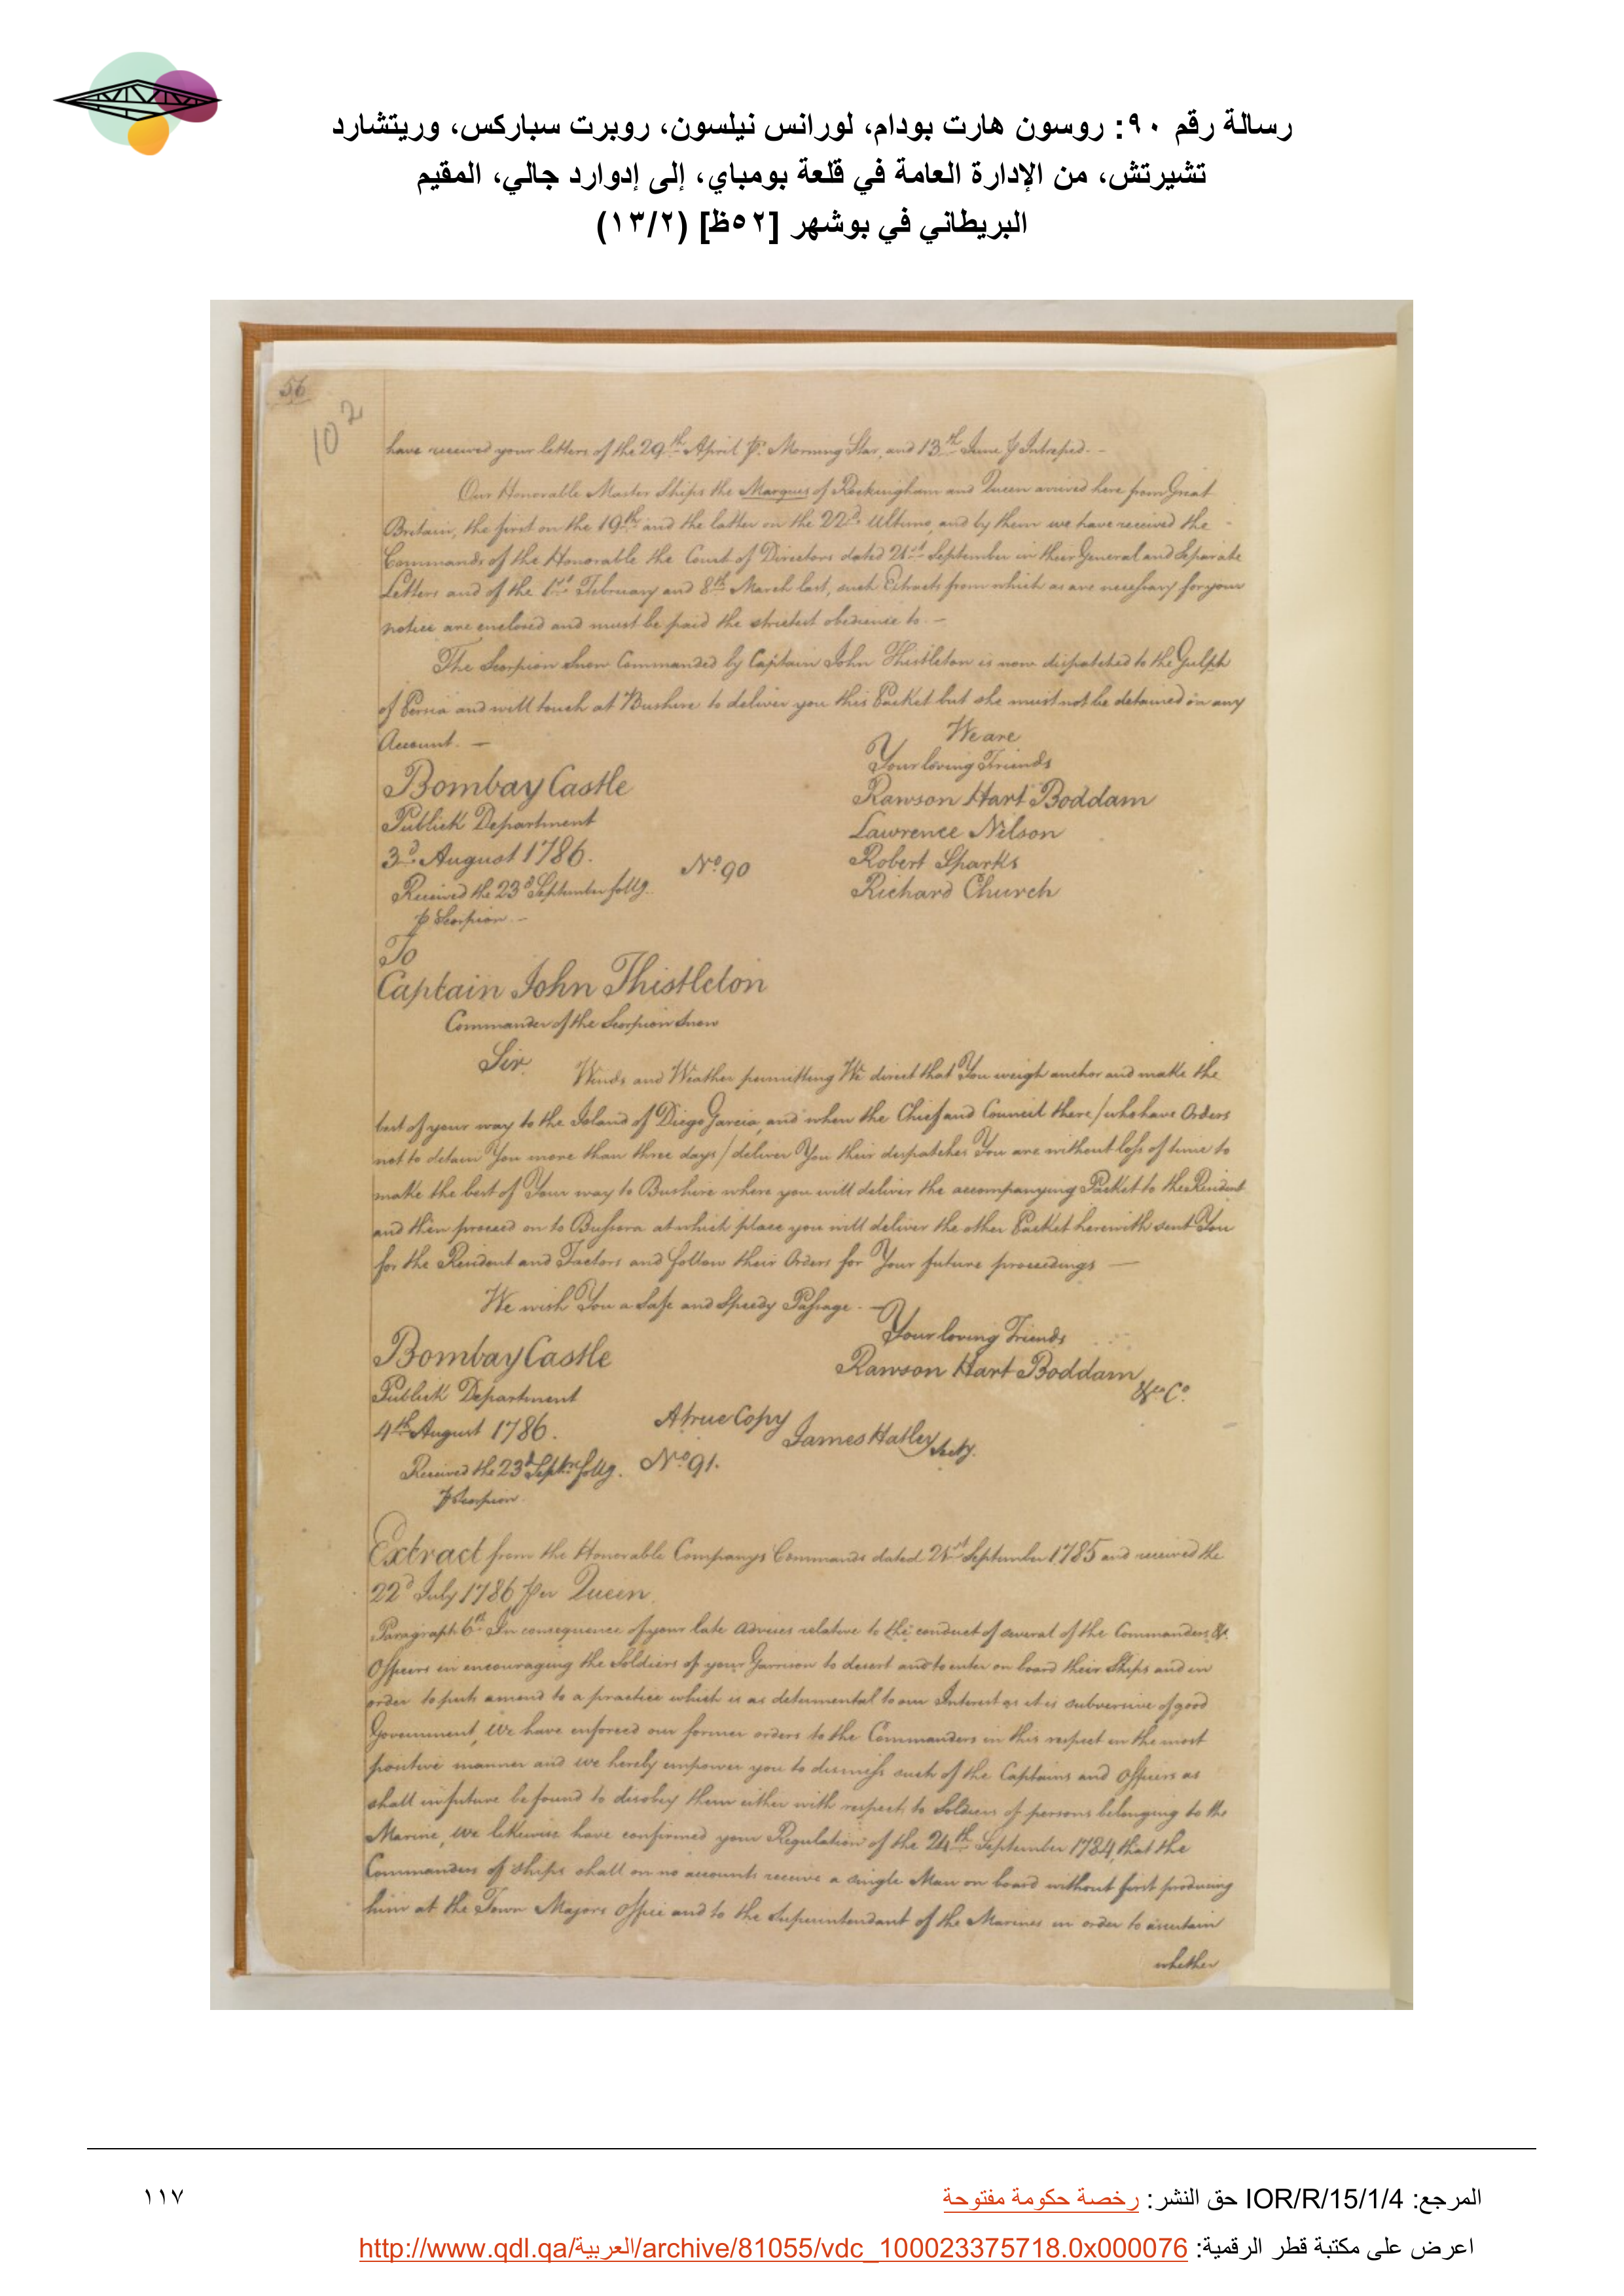 رسالة رقم ٩٠: روسون هارت بودام، لورانس نيلسون، روبرت سباركس، وريتشارد
تشيرتش، من الإدارة العامة في قلعة بومباي، إلى إدوارد جالي، المقيم
البريطاني في بوشهر [٥٢ظ] (١٣/٢)
56
102
have received your letters of the 29th April pr. Morning Star, and 13th June p Intrepid. -
Our Honorable Master Ships the Marquis of Rockingham and Queen arrived here from Great
Britain, the first on the 19th and the latter on the 22d Ultimo, and by them we have received the
Commands of the Honorable the Court of Directors dated 21st September in their General and Separate
Letters and of the 1st February and 8th March last, such Extracts from which as are necessary for your
notice are enclosed and must be paid the strictest obedience to. -
The Scorpion Snow Commanded by Captain John Thistleton is now dispatched to the Gulph
of Persia and will touch at Bushire to deliver you this Packet but she must not be detained on any
Account. -
We are
Your loving Friends
Bombay Castle
Rawson Hart Boddam
Publick Department
Lawrence Nilson
3d August 1786.
Robert Sparks
No. 90
Received the 23d September follg.
Richard Church
p Scorpion. -
To
Captain John Thistleton
Commander of the Scorpion Snow
Sir
Winds and Weather permitting We direct that You weigh anchor and make the
best of your way to the Island of Diego Garcia, and when the Chief and Council there / who have Orders
not to detain You more than three days / deliver You their dispatches You are without loss of time to
make the best of Your way to Bushire where you will deliver the accompanying Packet to the Resident
and then proceed on to Bussora at which place you will deliver the other Packet herewith sent You
for the Resident and Factors and follow their Orders for Your future proceedings -
We wish You a Safe and Speedy Passage. -
Your loving Friends
Bombay Castle
Rawson Hart Boddam
&ca Co.
Publick Department
4th August 1786.
A true Copy
James Hatley Secty.
Received the 23d Septr. follg.
No. 91.
p Scorpion.
Extract from the Honorable Companys Commands dated 21st September 1785 and received the
22d July 1786 per Queen.
Paragraph 6th In consequence of your late advices relative to the conduct of several of the Commanders &
Officers in encouraging the Soldiers of your Garrison to desert and to enter on board their Ships and in
order to put an end to a practice which is as detrimental to our Interest as it is subversive of good
Government, We have enforced our former orders to the Commanders in this respect in the most
positive manner and we hereby empower you to dismiss such of the Captains and Officers as
shall in future be found to disobey them either with respect to Soldiers or persons belonging to the
Marine, We likewise have confirmed your Regulation of the 24th September 1784, that the
Commanders of ships shall on no accounts receive a single Man on board without first producing
him at the Town Majors Office and to the Superintendant of the Marines in order to ascertain
whether
المرجع: IOR/R/15/1/4 حق النشر: رخصة حكومة مفتوحة
١١٧
اعرض على مكتبة قطر الرقمية: http://www.qdl.qa/العربية/archive/81055/vdc_100023375718.0x000076